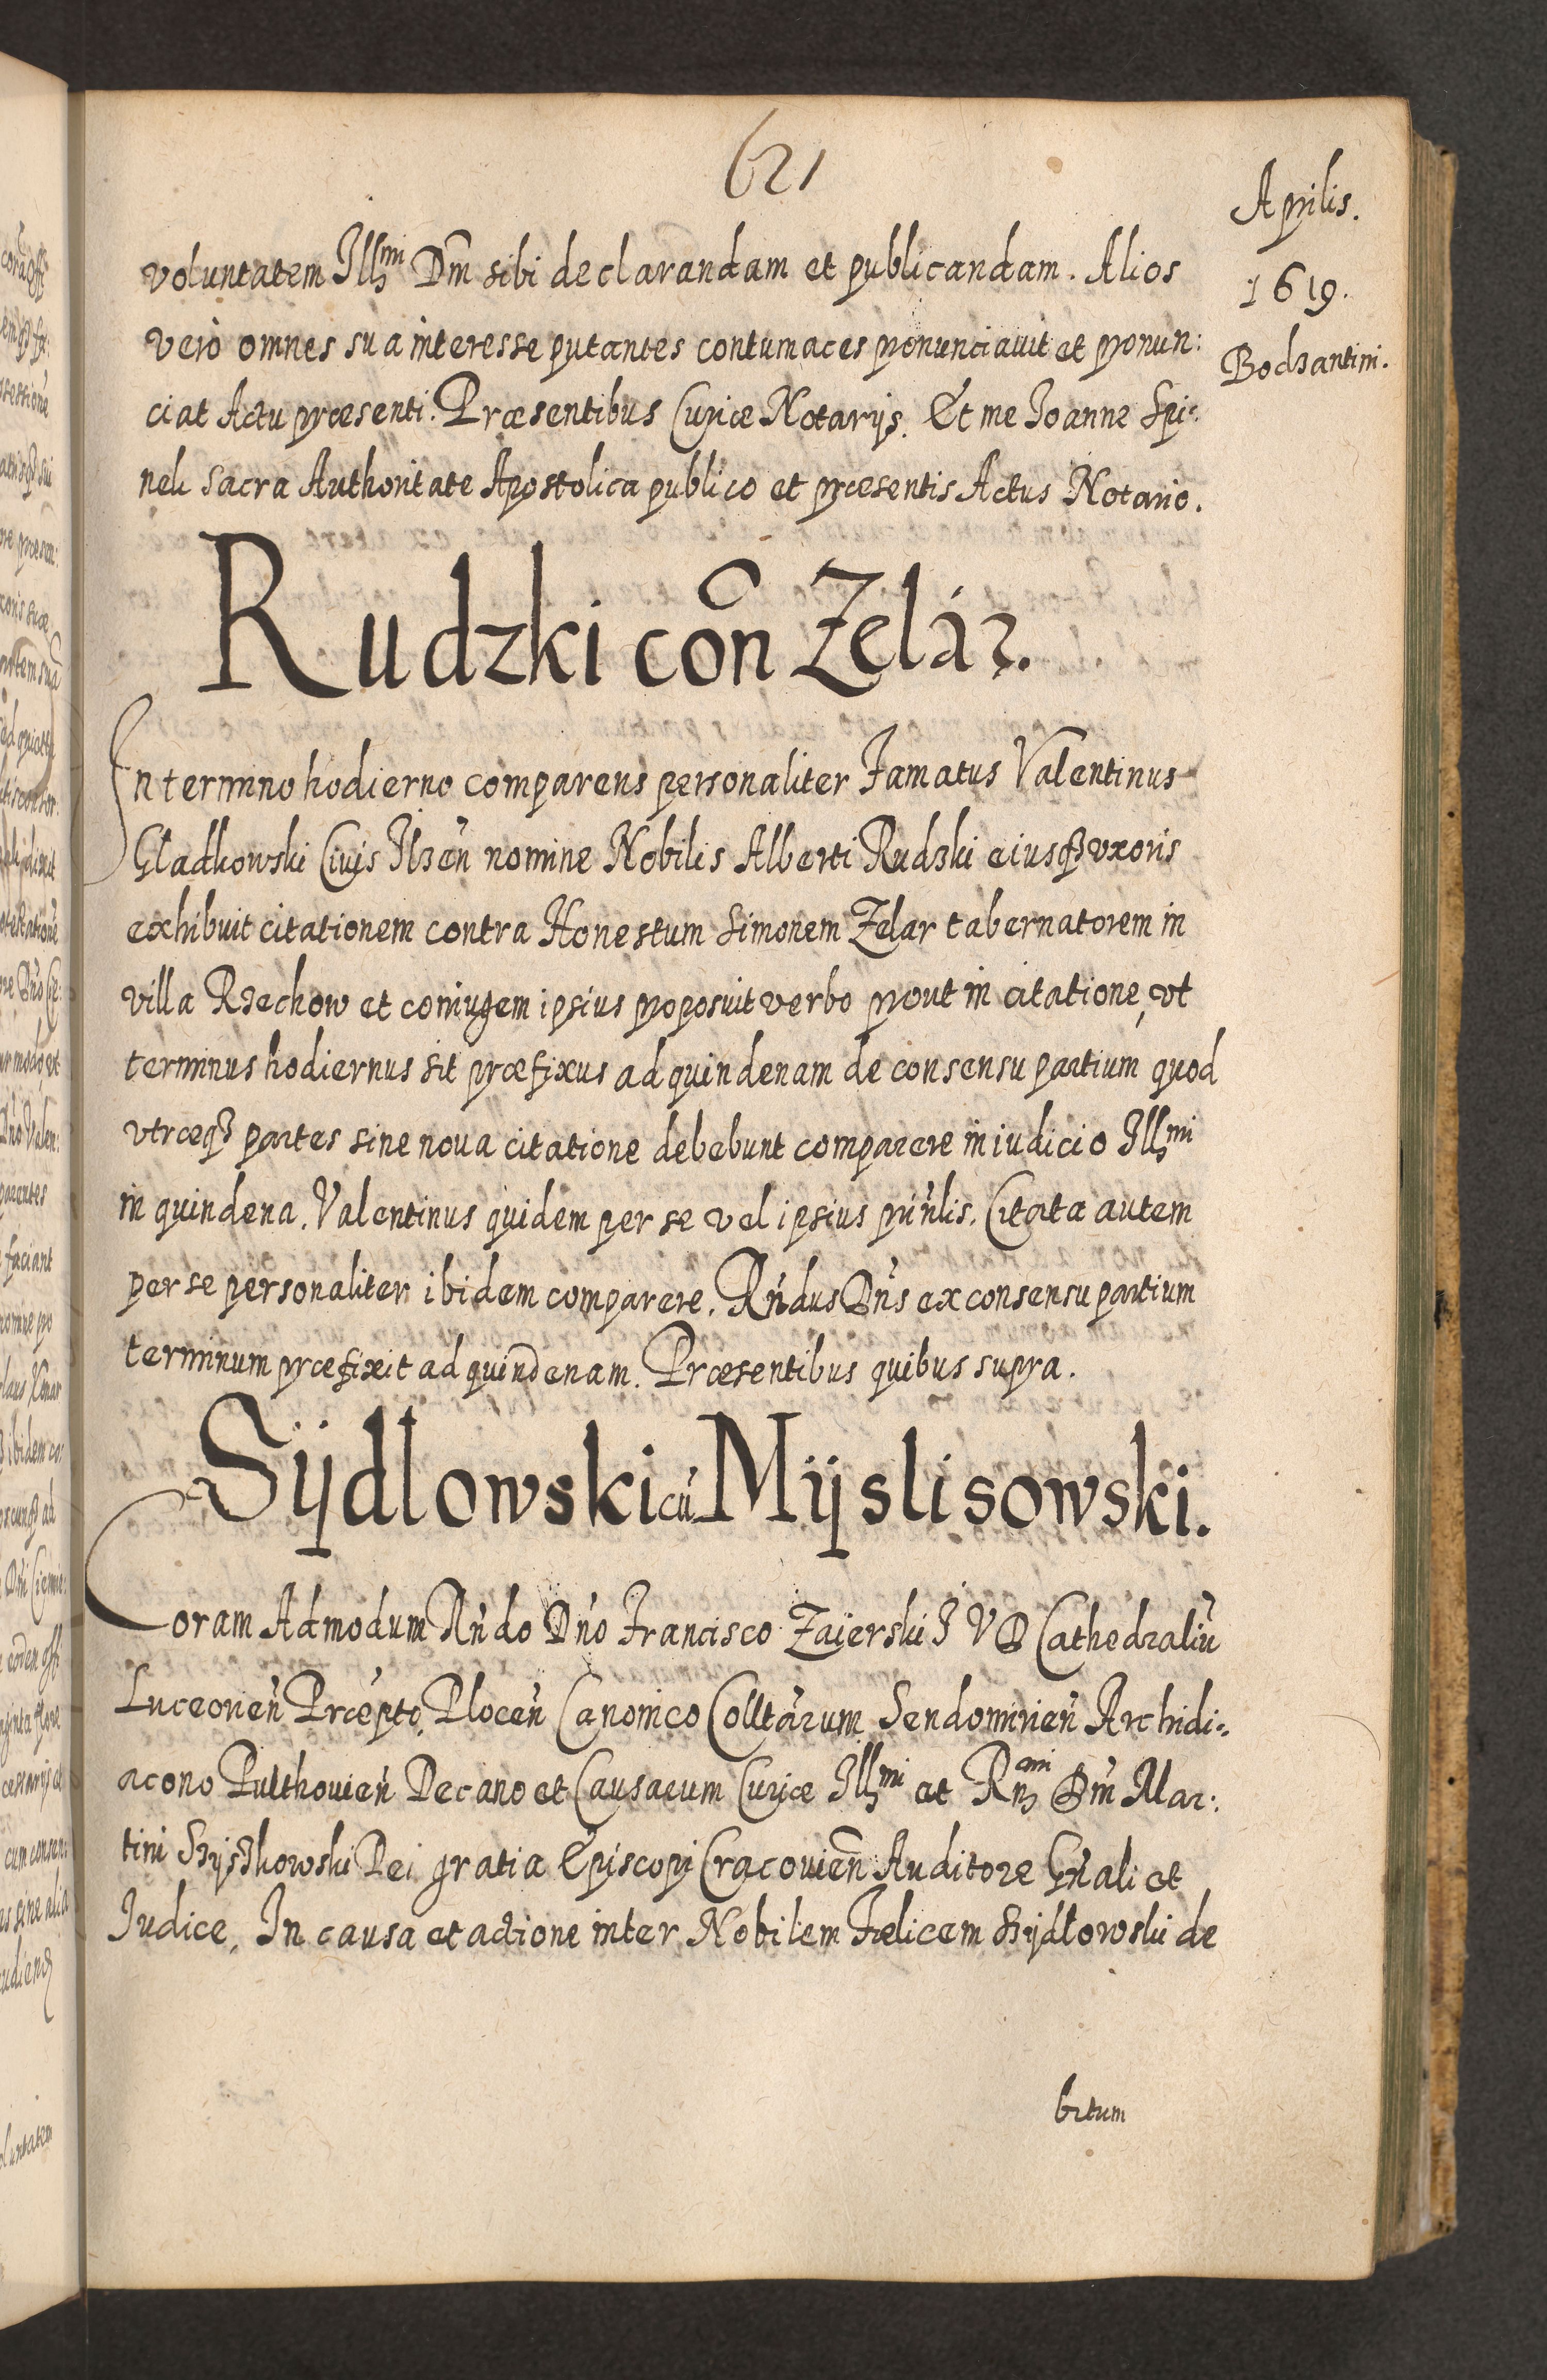 621
Aprilis.
1619.
Bodzantini.
voluntatem Illmi Dm̃ sibi declarandam et publicandam. Alios
vero omnes sua interesse putantes contumaces pronunciauit et pronun:
ciat Actu præsenti. Præsentibus Curiæ Notarijs. Et me Joanne Spi:
neli Sacra Authoritate Apostolica publico et præsentis Actus Notario.
Rudzki con̄ Zeláz.
In termino hodierno comparens personaliter Famatus Valentinus
Gladkowski Ciuis Ilzen̄ nomine Nobilis Alberti Rudzki eiusqȝ vxoris
exhibuit citationem contra Honestum Simonem Zelar tabernatorem in
villa Rzechow et coniugem ipsius proposuit verbo prout in citatione, vt
terminus hodiernus sit præfixus ad quindenam de consensu partium quod
vtræqȝ partes sine noua citatione debebunt comparere in iudicio Illmi
in quindena. Valentinus quidem per se vel ipsius prin̄lis. Citata autem
per se personaliter ibidem comparere. Rn̄dus Dn̄s ex consensu partium
terminum præfixit ad quindenam. Præsentibus quibus supra.
Sÿdlowski cū Mÿslisowski.
Coram Admodum Rn̄do Dn̄o Francisco Zaierski I V D Cathedraliū
Luceorien̄ Præpto, Plocen̄ Canonico Colltārum Sendomirien̄ Archidi:
acono Pulthouien̄ Decano et Causarum Curiæ Illmi et Rn̄mi Dn̄i Mar:
tini Szyszkowski Dei gratia Episcopi Cracouien̄ Auditore Gn̄ali et
Iudice. In causa et actione inter Nobilem Felicem Szÿdłowski de